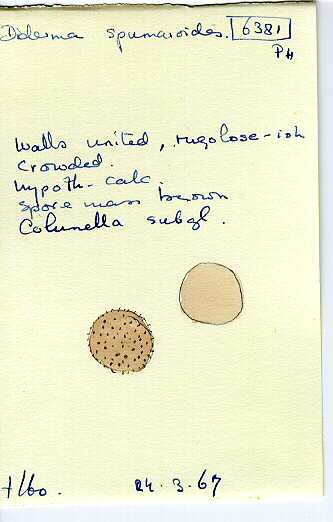 Diderma spumarioides. 6381
PH
Walls united, rugolose-ish
Crowded.
Hypoth- calc.
Spore mass brown
Columella subgl.
24.3.67